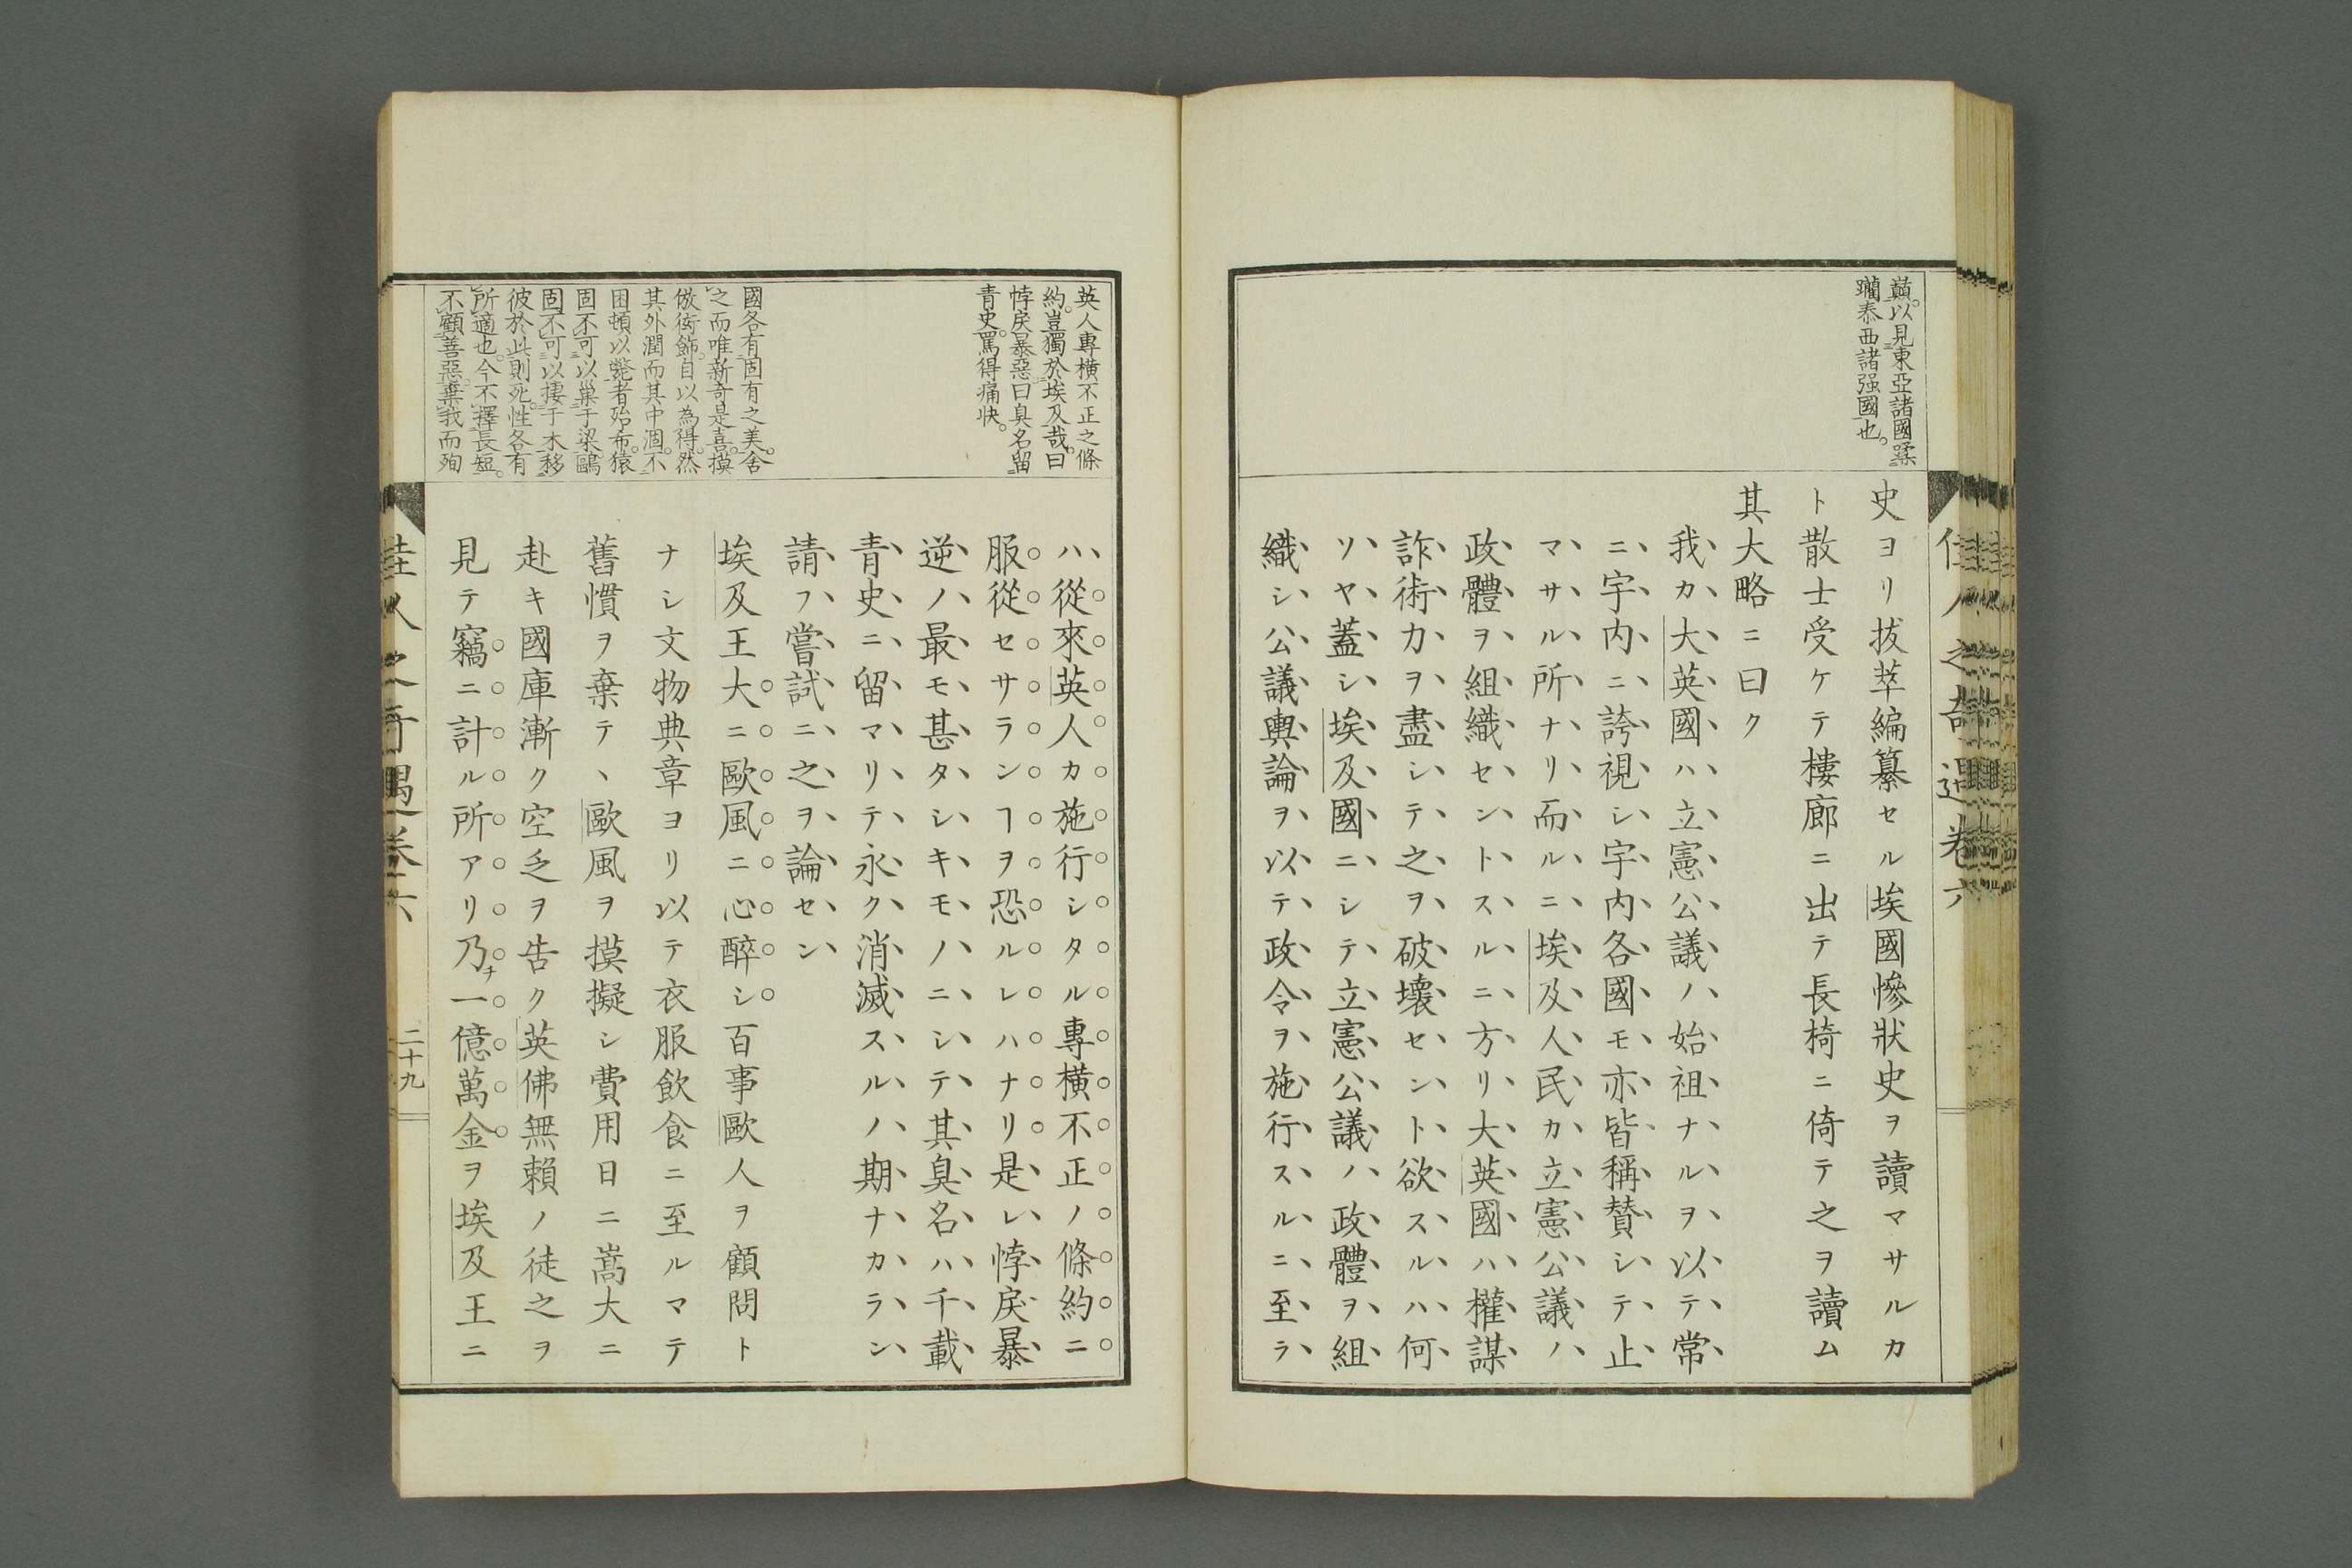 巓以見東亞諸國蹂
躪泰西諸强國也
史ヨリ拔萃編纂セル埃國慘狀史ヲ讀マサルカ
ト散士受ケテ樓廊ニ出テ長椅ニ倚テ之ヲ讀ム
其大略ニ曰ク
我カ大英國ハ立憲公議ノ始祖ナルヲ以テ常
ニ宇内ニ誇視シ宇内各國モ亦皆稱賛シテ止
マサル所ナリ而ルニ埃及人民カ立憲公議ノ
政體ヲ組織セントスルニ方リ大英國ハ權謀
詐術力ヲ盡シテ之ヲ破壞セント欲スルハ何
ソヤ蓋シ埃及國ニシテ立憲公議ノ政體ヲ組
織シ公議輿論ヲ以テ政令ヲ施行スルニ至ラ
佳人之奇遇卷六
英人專橫不正之條
約豈獨於埃及哉曰
悖戾暴惡曰臭名留
青史罵得痛快
國各有固有之美舍
之而唯新奇是喜摸
倣衒飾自以為得然
其外潤而其中涸不
困頓以斃者殆希猿
固不可以巢于梁鷗
固不可以捿于木移
彼於此則死性各有
所適也今不擇長短
不顧善惡棄我而殉
ハ從來英人カ施行シタル專橫不正ノ條約ニ
服從セサランヿヲ恐ルレハナリ是レ悖戾暴
逆ノ最モ甚タシキモノニシテ其臭名ハ千載
青史ニ留マリテ永ク消滅スルノ期ナカラン
請フ嘗試ニ之ヲ論セン
埃及王大ニ歐風ニ心醉シ百事歐人ヲ顧問ト
ナシ文物典章ヨリ以テ衣服飮食ニ至ルマテ
舊慣ヲ棄テヽ歐風ヲ摸擬シ費用日ニ嵩大ニ
赴キ國庫漸ク空乏ヲ告ク英佛無賴ノ徒之ヲ
見テ竊ニ計ル所アリ乃チ一億萬金ヲ埃及王ニ
佳人之奇遇卷六
二十九